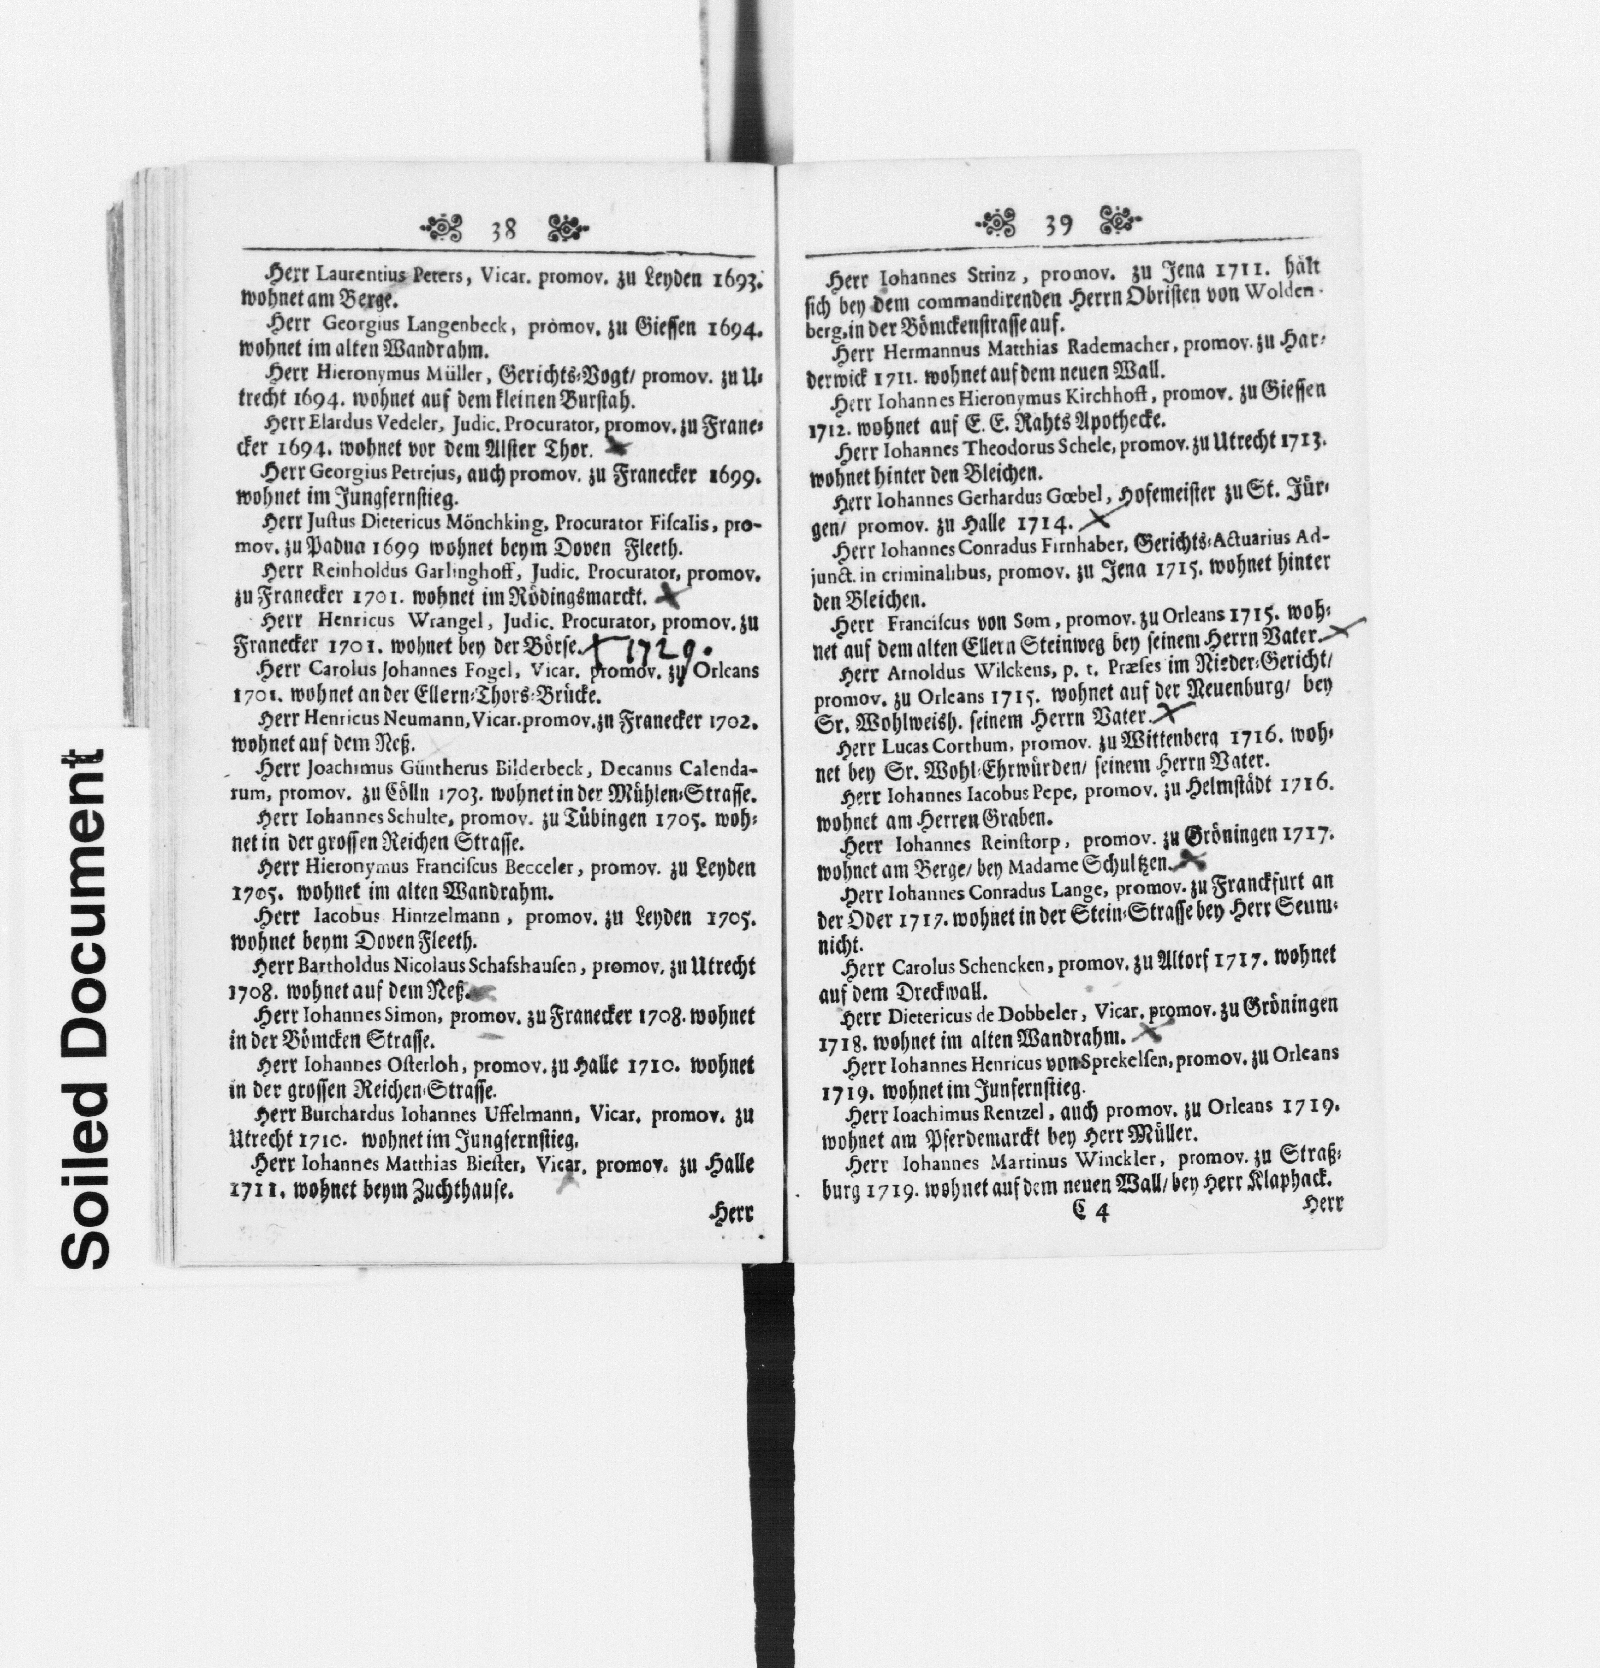 38
Herr Laurentius Peters, Vicar. promov. zu Leyden 1693.
wohnet am Berge.
Herr Georgius Langenbeck, promov. zu Giessen 1694.
wohnet im alten Wandrahm.
Herr Hieronymus Müller, Gerichts-Vogt/ promov. zu U-
trecht 1694. wohnet auf dem kleinen Burstah.
Herr Elardus Vedeler, Judic. Procurator, promov. zu Frane-
cker 1694. wohnet vor dem Alster Thor.
Herr Georgius Petrejus, auch promov. zu Franecker 1699.
wohnet im Jungfernstieg.
Herr Justus Dietericus Mönchking, Procurator Fiscalis, pro-
mov. zu Padua 1699 wohnet beym Doven Fleeth.
Herr Reinholdus Garlinghoff, Judic. Procurator, promov.
zu Franecker 1701. wohnet im Rödingsmarckt.
Herr Henricus Wrangel, Judic. Procurator, promov. zu
Franecker 1701. wohnet bey der Börse. † 1729.
Herr Carolus Johannes Fogel, Vicar. promov. zu Orleans
1701. wohnet an der Ellern-Thors-Brücke.
Herr Henricus Neumann, Vicar. promov. zu Franecker 1702.
wohnet auf dem Neß.
Herr Joachimus Güntherus Bilderbeck, Decanus Calenda-
rum, promov. zu Cölln 1703. wohnet in der Mühlen-Strasse.
Herr Iohannes Schulte, promov. zu Tübingen 1705. woh-
net in der grossen Reichen Strasse.
Herr Hieronymus Franciscus Becceler, promov. zu Leyden
1705. wohnet im alten Wandrahm.
Herr Iacobus Hintzelmann, promov. zu Leyden 1705.
wohnet beym Doven Fleeth.
Herr Bartholdus Nicolaus Schafshausen, promov. zu Utrecht
1708. wohnet auf dem Neß.
Herr Iohannes Simon, promov. zu Franecker 1708. wohnet
in der Bömcken Strasse.
Herr Iohannes Osterloh, promov. zu Halle 1710. wohnet
in der grossen Reichen-Strasse.
Herr Burchardus Iohannes Uffelmann, Vicar. promov. zu
Utrecht 1710. wohnet im Jungfernstieg.
Herr Iohannes Matthias Biester, Vicar. promov. zu Halle
1711. wohnet beym Zuchthause.
Herr
39
Herr Iohannes Strinz, promov. zu Jena 1711. hält
sich bey dem commandirenden Herrn Obristen von Wolden-
berg, in der Bömckenstrasse auf.
Herr Hermannus Matthias Rademacher, promov. zu Har-
derwick 1711. wohnet auf dem neuen Wall.
Herr Iohannes Hieronymus Kirchhoff, promov. zu Giessen
1712. wohnet auf E. E. Rahts Apothecke.
Herr Iohannes Theodorus Schele, promov. zu Utrecht 1713.
wohnet hinter den Bleichen.
Herr Iohannes Gerhardus Gœbel, Hofemeister zu St. Jür-
gen/ promov. zu Halle 1714.
Herr Iohannes Conradus Firnhaber, Gerichts-Actuarius Ad-
junct. in criminalibus, promov. zu Jena 1715. wohnet hinter
den Bleichen.
Herr Franciscus von Som, promov. zu Orleans 1715. woh-
net auf dem alten Ellern Steinweg bey seinem Herrn Vater.
Herr Arnoldus Wilckens, p. t. Præses im Nieder-Gericht/
promov. zu Orleans 1715. wohnet auf der Neuenburg/ bey
Sr. Wohlweish. seinem Herrn Vater.
Herr Lucas Corthum, promov. zu Wittenberg 1716. woh-
net bey Sr. Wohl-Ehrwürden/ seinem Herrn Vater.
Herr Iohannes Iacobus Pepe, promov. zu Helmstädt 1716.
wohnet am Herren Graben.
Herr Iohannes Reinstorp, promov. zu Gröningen 1717.
wohnet am Berge/ bey Madame Schultzen.
Herr Iohannes Conradus Lange, promov. zu Franckfurt an
der Oder 1717. wohnet in der Stein-Strasse bey Herr Seum-
nicht.
Herr Carolus Schencken, promov. zu Altorf 1717. wohnet
auf dem Dreckwall.
Herr Dietericus de Dobbeler, Vicar. promov. zu Gröningen
1718. wohnet im alten Wandrahm.
Herr Iohannes Henricus von Sprekelsen, promov. zu Orleans
1719. wohnet im Junfernstieg.
Herr Ioachimus Rentzel, auch promov. zu Orleans 1719.
wohnet am Pferdemarckt bey Herr Müller.
Herr Iohannes Martinus Winckler, promov. zu Straß-
burg 1719. wohnet auf dem neuen Wall/ bey Herr Klaphack.
C 4
Herr
Soiled Document